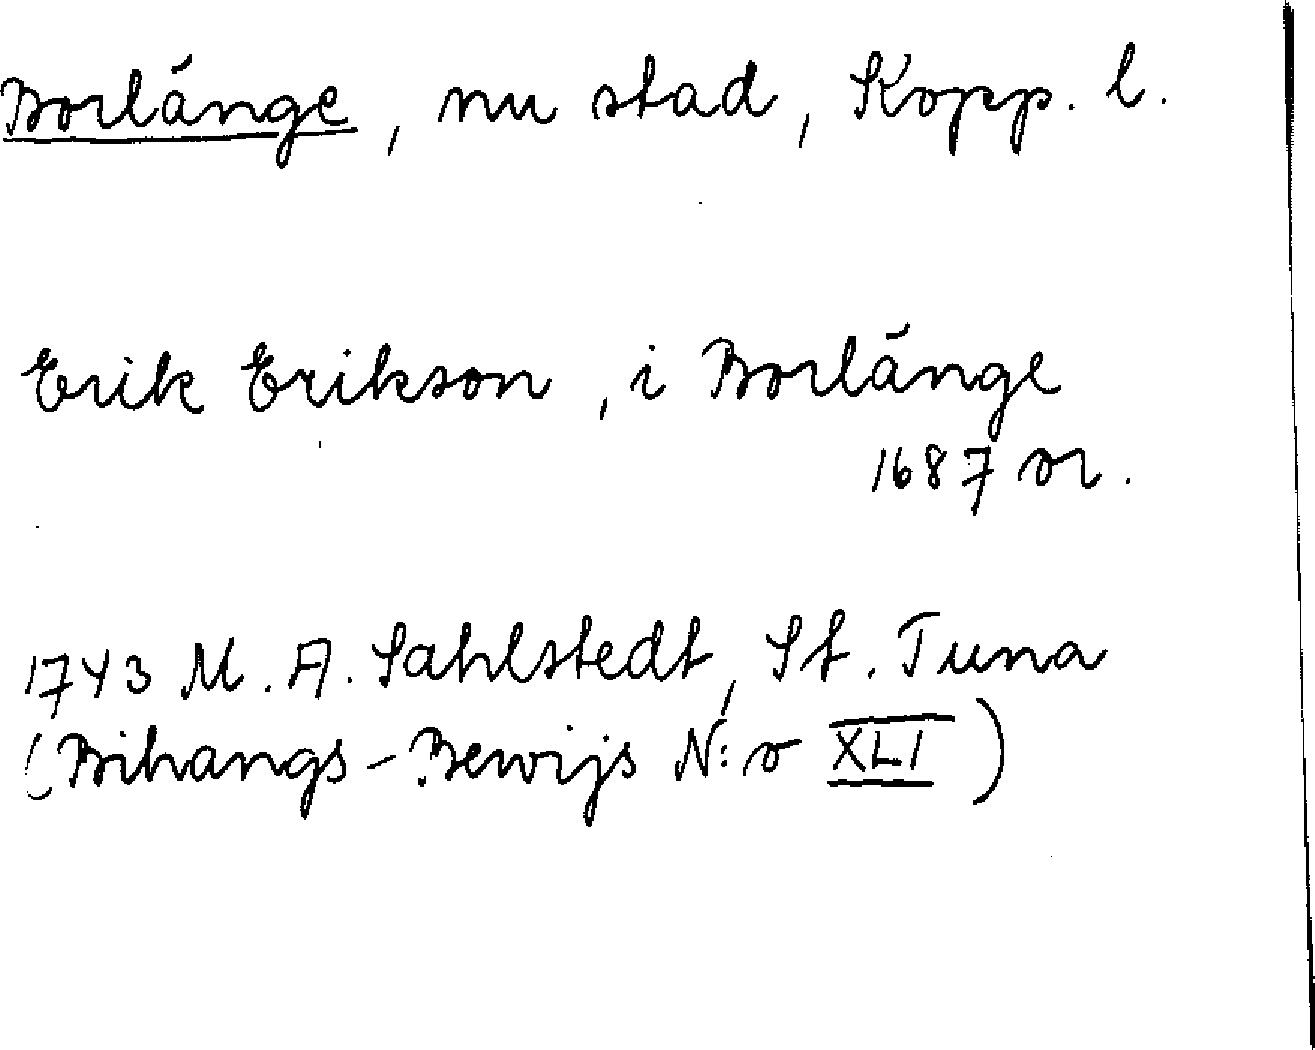 Borlänge, nu stad, Kopp. l.
Erik Erikson, i Borlänge
1687 or.
1743 M. A. Sahlstedt, St. Tuna
(Bihangs-Bewijs N:o XLI)